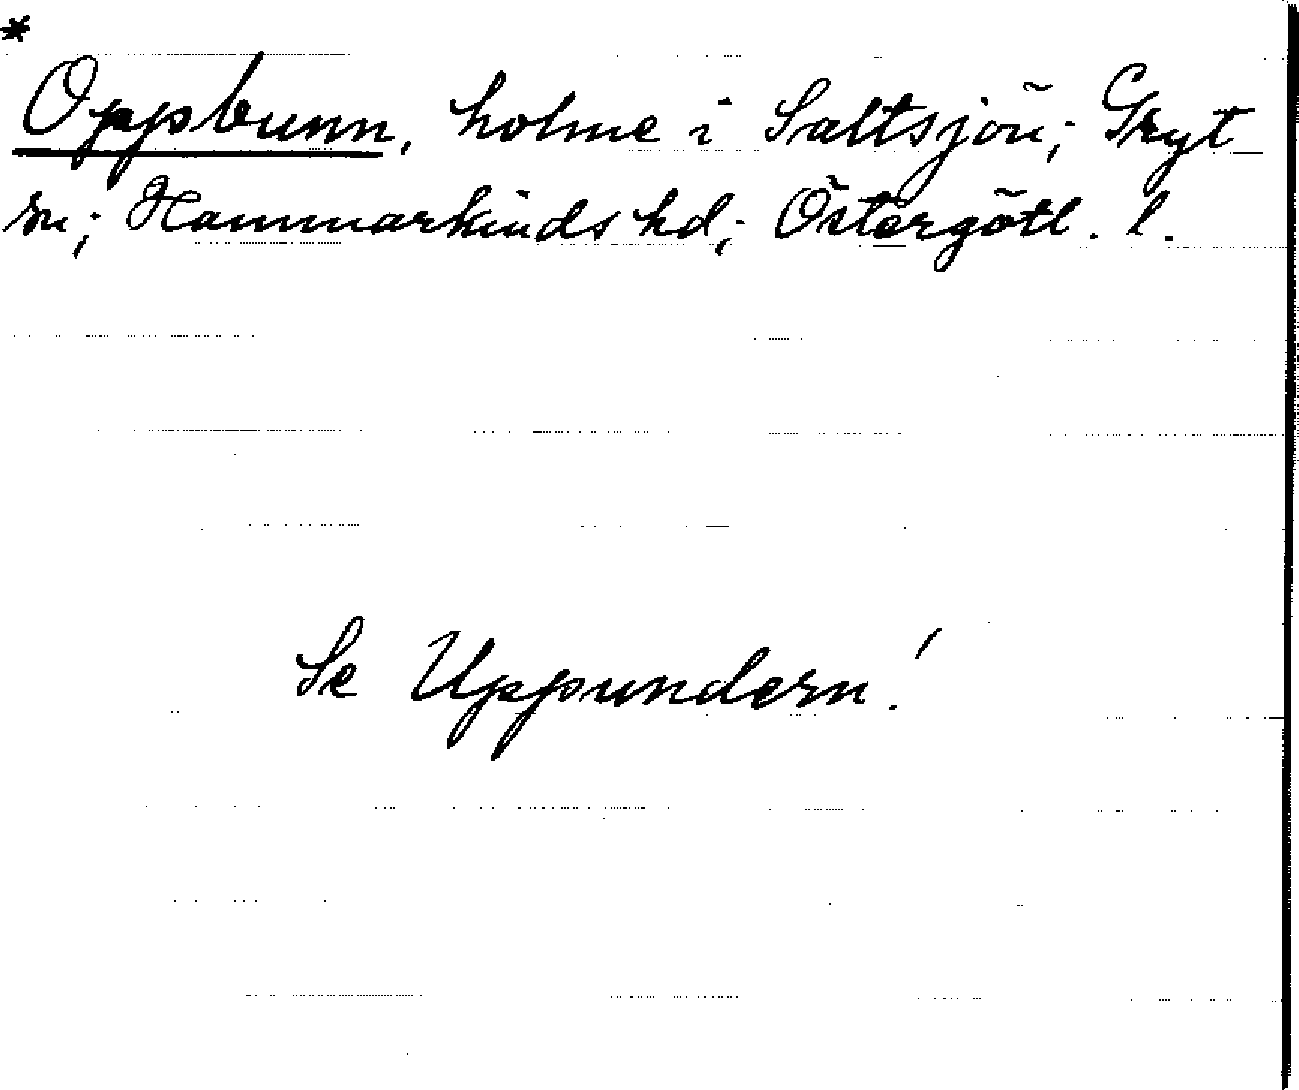 *
Oppbunn, holme i Saltsjön; Gryt
sn; Hammarkinds hd; Östergötl. l.
Se Uppundern!